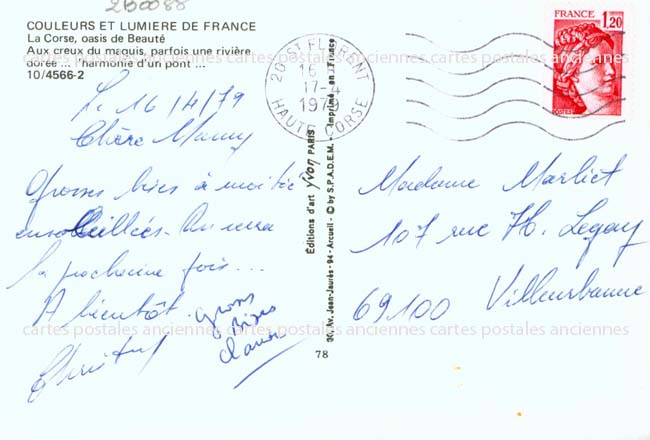 2B0088
COULEURS ET LUMIERE DE FRANCE
La Corse, oasis de Beauté
Aux creux du maquis, parfois une rivière
dorée ... l'harmonie d'un pont ...
10/4566-2
Le 16/4/79
Chère Mamy
Grosses bises à moitié
ensoleillées. On verra
la prochaine fois...
A bientôt.
Grosses
bises
20 ST FLORENT
16
17-4
1979
HAUTE CORSE
FRANCE
1,20
POSTES
Editions d'art yvon PARIS
30, Av. Jean-Jaurès - 94 - Arcueil - © by S.P.A.D.E.M. - Imprimé en France
78
Madame Marliet
107 rue H. Legay
69100 Villeurbanne
cartes postales anciennes cartes postales anciennes cartes postales anciennes
cartes postales anciennes cartes postales anciennes cartes postales anciennes